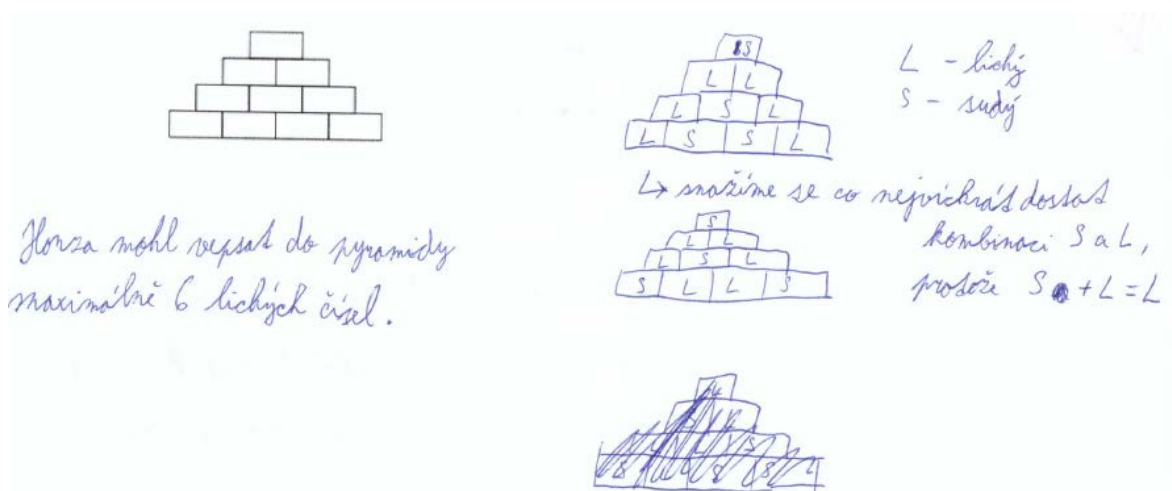 Honza mohl vepsat do pyramidy
maximálně 6 lichých čísel.
S
L L
L S L
L S S L
L - lichý
S - sudý
↳ snažíme se co nejvíckrát dostat
kombinaci S a L,
protože S + L = L
S
L L
L S L
S L L S